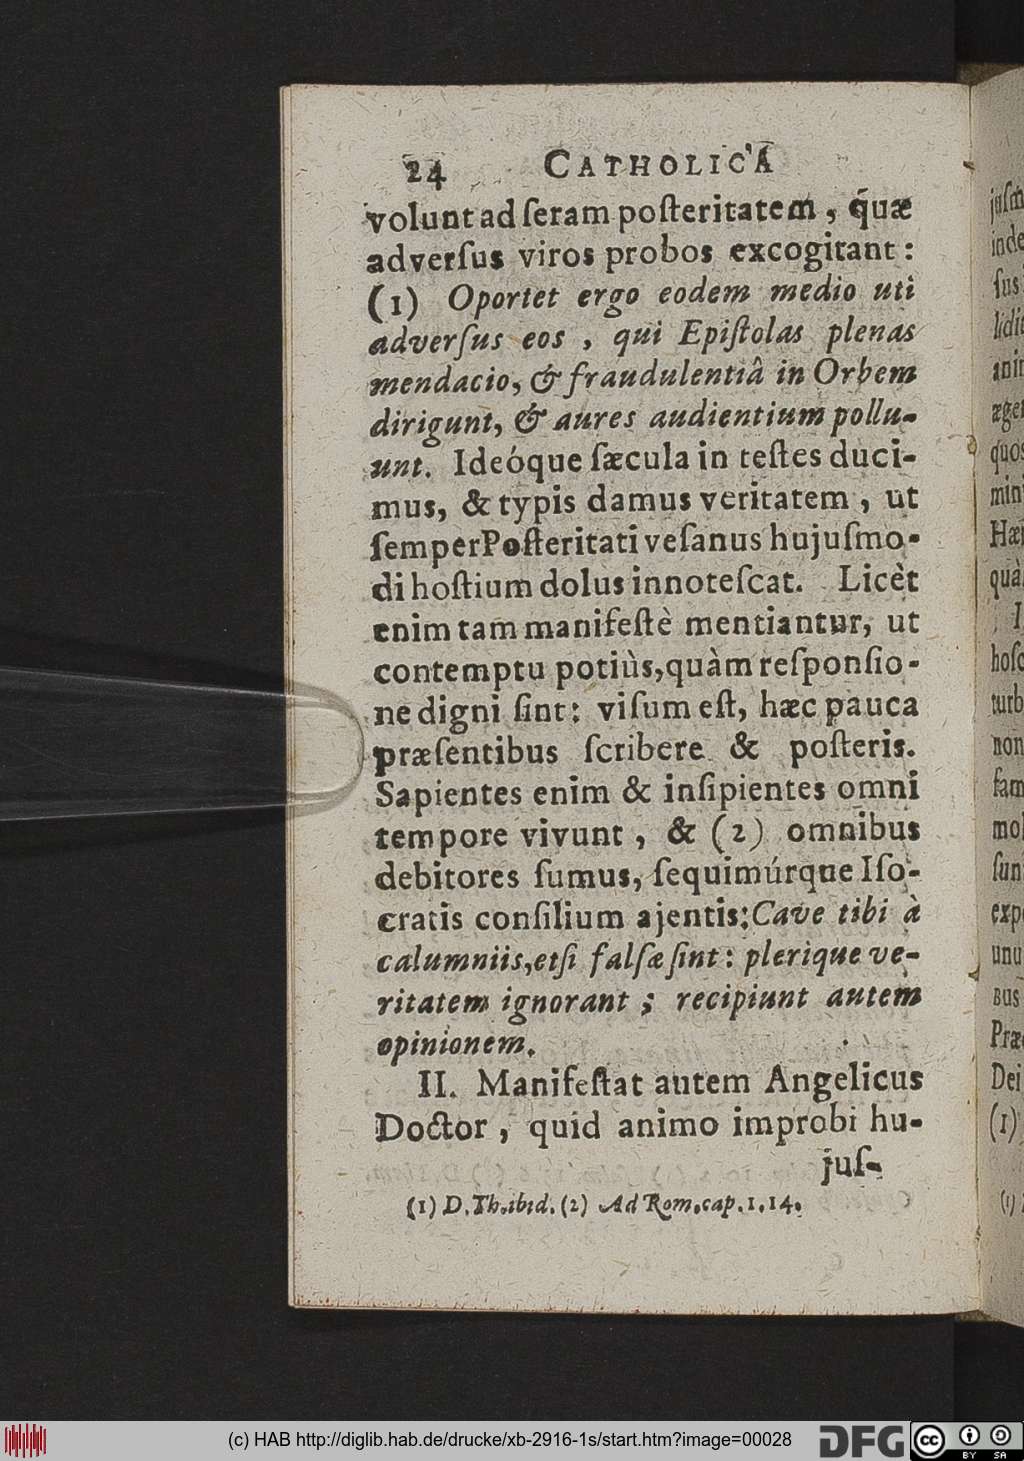 24 CATHOLICA
volunt ad ſeram poſteritatem, quæ
adverſus viros probos excogitant:
(1) Oportet ergo eodem medio uti
adverſus eos, qui Epiſtolas plenas
mendacio, & fraudulentiâ in Orbem
dirigunt, & aures audientium pollu-
unt. Ideóque ſæcula in teſtes duci-
mus, & typis damus veritatem, ut
ſemper Poſteritati veſanus hujuſmo-
di hoſtium dolus innoteſcat. Licèt
enim tam manifeſtè mentiantur, ut
contemptu potiùs, quàm reſponſio-
ne digni ſint: viſum eſt, hæc pauca
præſentibus ſcribere & poſteris.
Sapientes enim & inſipientes omni
tempore vivunt, & (2) omnibus
debitores ſumus, ſequimúrque Iſo-
cratis conſilium ajentis: Cave tibi à
calumniis, etſi falſæ ſint: plerique ve-
ritatem ignorant; recipiunt autem
opinionem.
II. Manifeſtat autem Angelicus
Doctor, quid animo improbi hu-
juſ-
(1) D. Th. ibid. (2) Ad Rom. cap. 1. 14.
(c) HAB http://diglib.hab.de/drucke/xb-2916-1s/start.htm?image=00028
DFG
cc BY SA